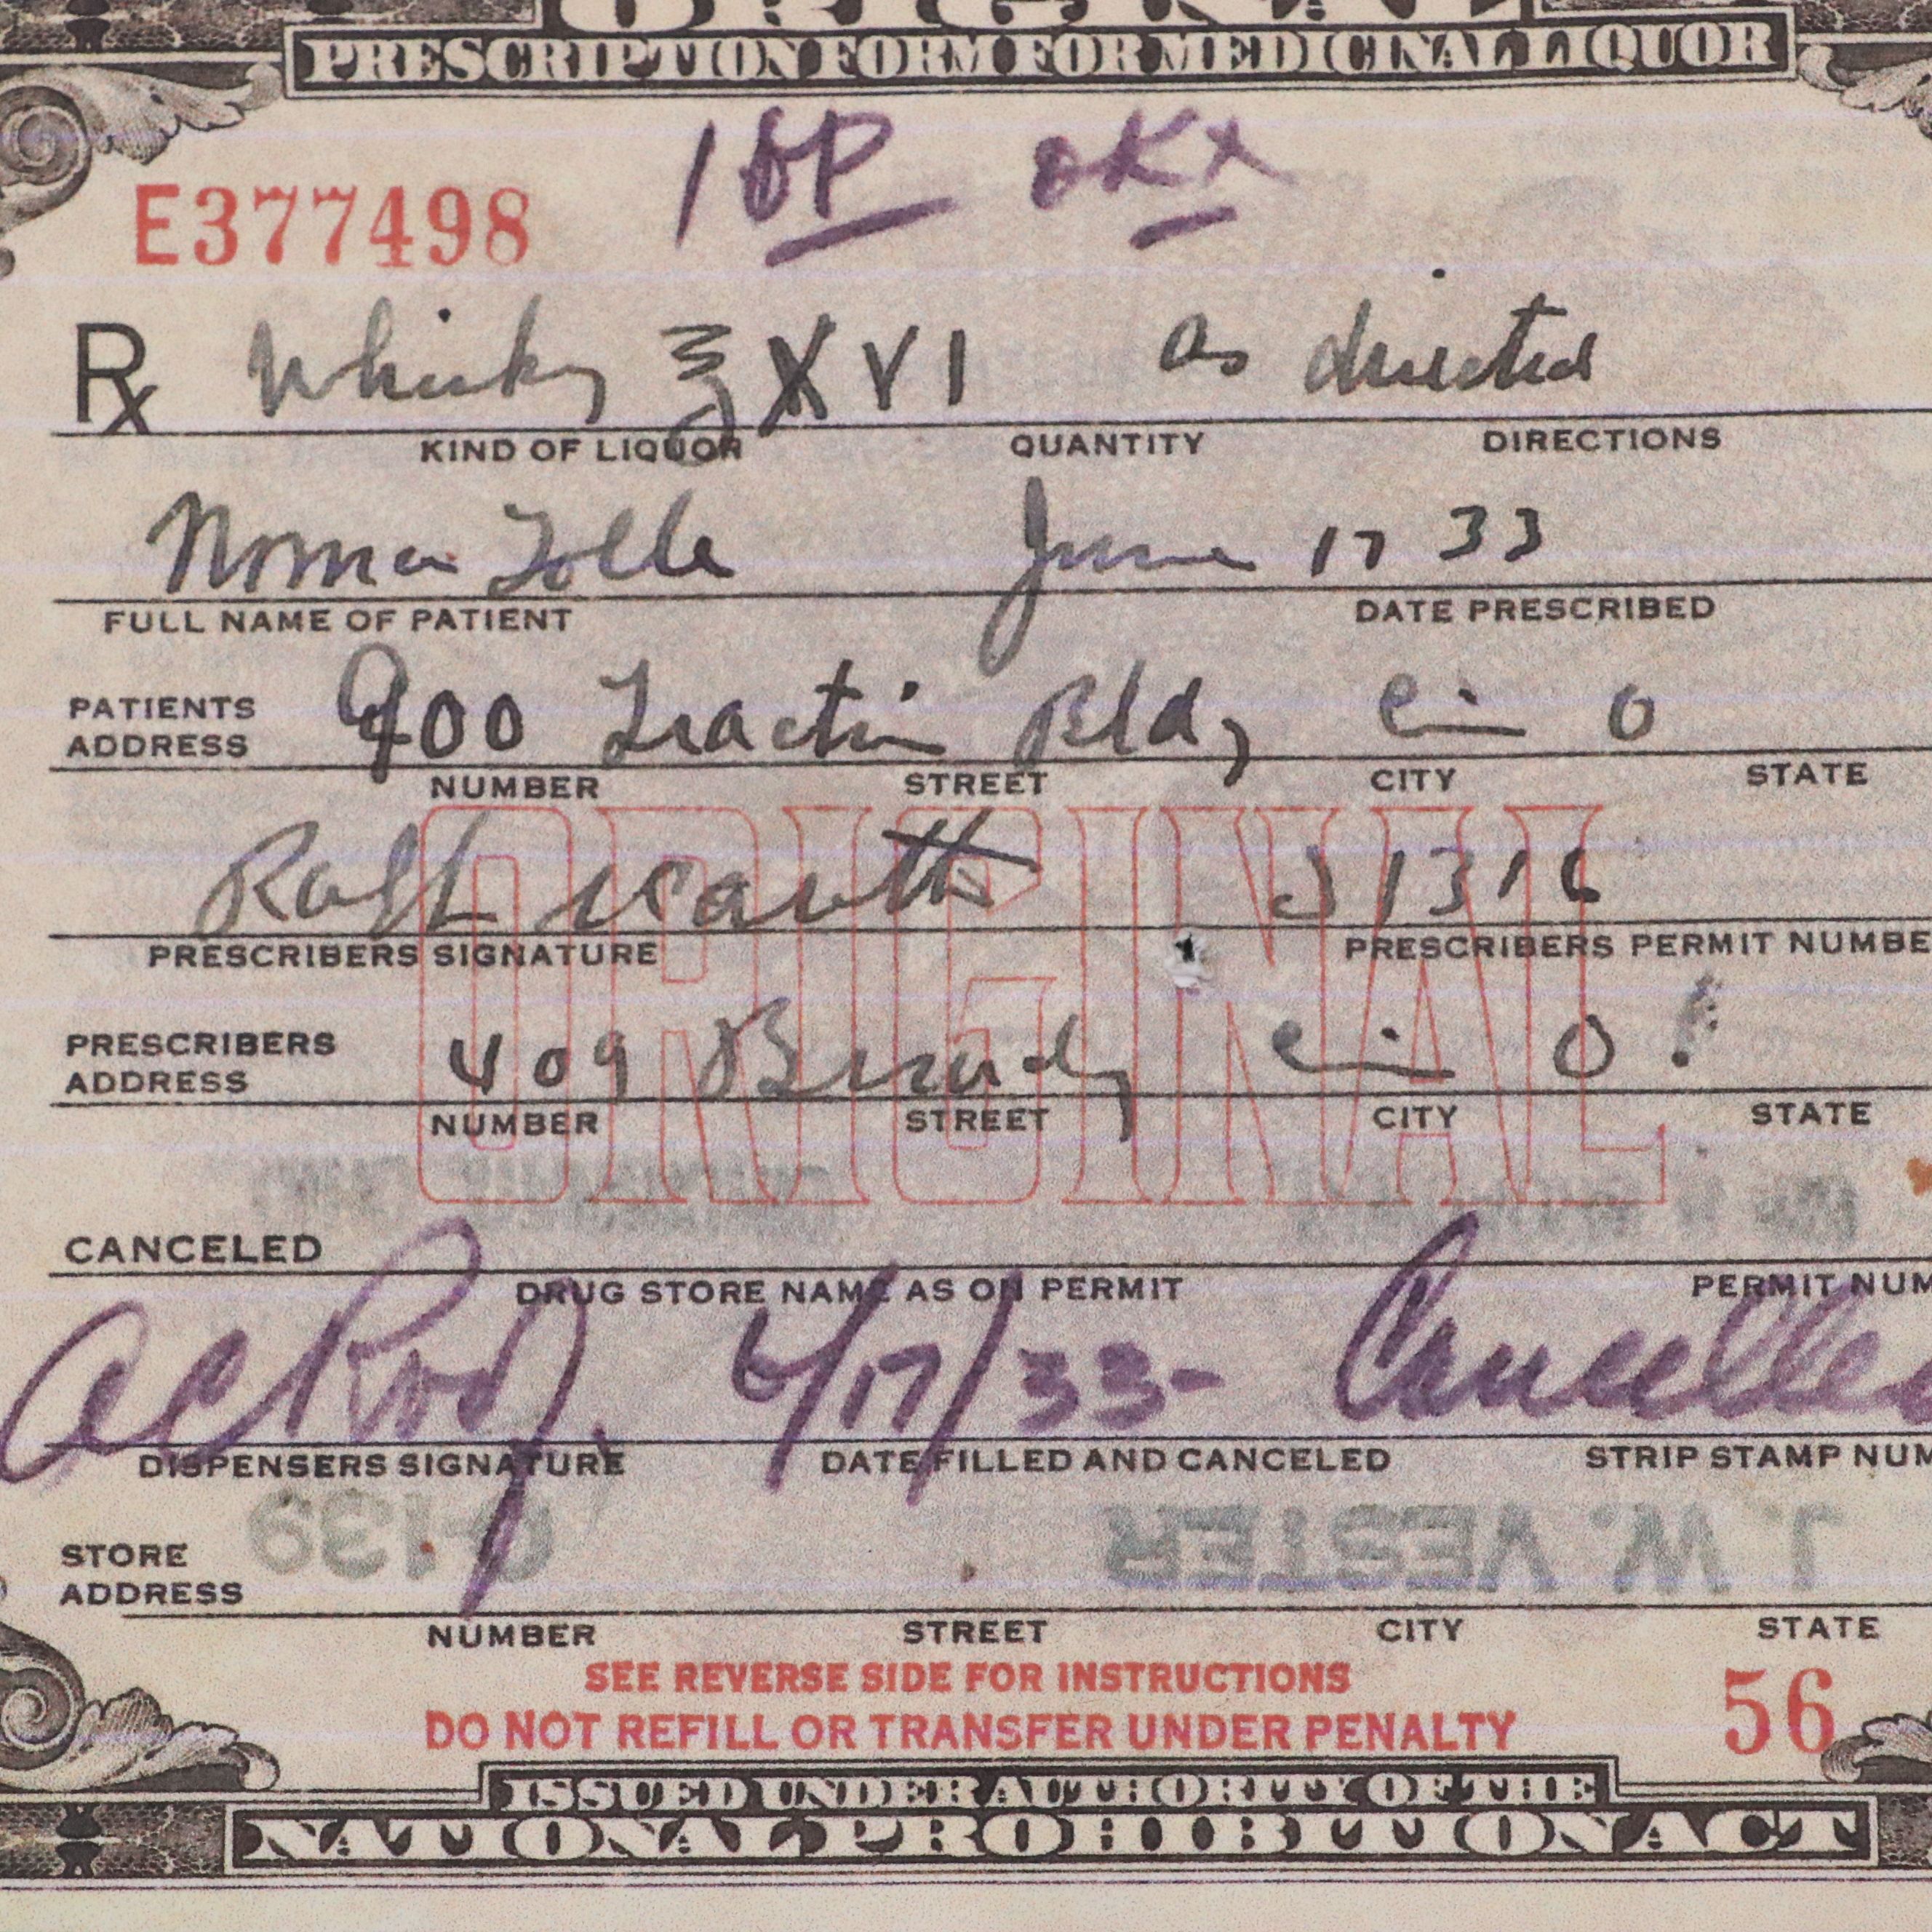 ORIGINAL
PRESCRIPTION FORM FOR MEDICINAL LIQUOR
OK
E377498
Rx Whisky ℥ XVI as directed
KIND OF LIQUOR QUANTITY DIRECTIONS
Norma Tolle June 17 33
FULL NAME OF PATIENT DATE PRESCRIBED
PATIENTS ADDRESS 900 Traction Bldg Cin O
NUMBER STREET CITY STATE
Ralph J1316
PRESCRIBERS SIGNATURE PRESCRIBERS PERMIT NUMBE
ORIGINAL
PRESCRIBERS ADDRESS 409 Broady Cin O
NUMBER STREET CITY STATE
CANCELED
DRUG STORE NAME AS ON PERMIT PERMIT NUM
6/17/33- Cancelled
DISPENSERS SIGNATURE DATE FILLED AND CANCELED STRIP STAMP NUM
J. W. VESTER
STORE ADDRESS
NUMBER STREET CITY STATE
SEE REVERSE SIDE FOR INSTRUCTIONS
DO NOT REFILL OR TRANSFER UNDER PENALTY 56
ISSUED UNDER AUTHORITY OF THE
NATIONAL PROHIBITION ACT